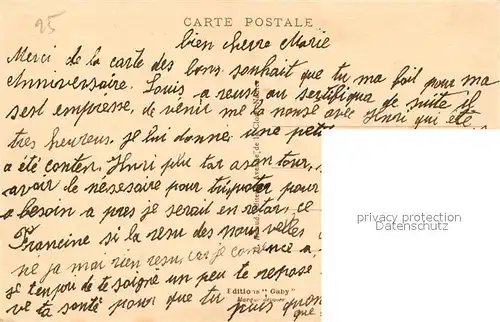 25
CARTE POSTALE
bien cherre Marie
Merci de la carte des bons souhait que tu ma fait pour ma
Anniversaire. Louis a reusu au sertifiqua de suite il
sest empresse, de vénir me la nonse avec Henri qui été
tres heureux, Je lui donne une
a été conten, Henri plu tar a son tour,
avoir le nésesaire pour tripoter pour
a besoin a pres je serait en retar, ce
Francine si la resu des nouvelles
ne ja mai rien resu, car je comence a
je tenjou de te soigné un peu te repose
ve ta santé pour que tu puis
que
Editions "Gaby"
Marque déposée
privacy protection
Datenschutz